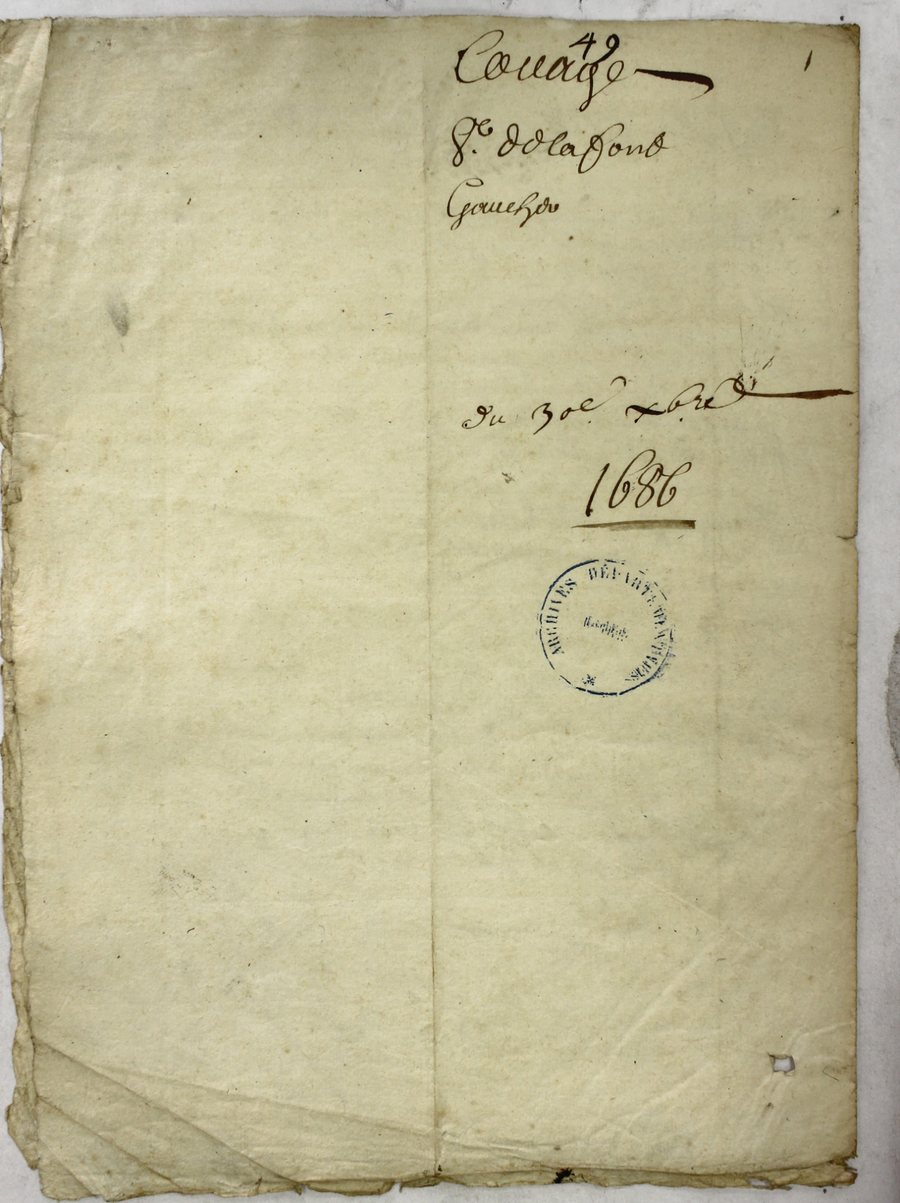 49
1
Louage
Sr. de la fond
Gaucher
du 30e. xbre
1686
ARCHIVES DÉPARTEMENTALES